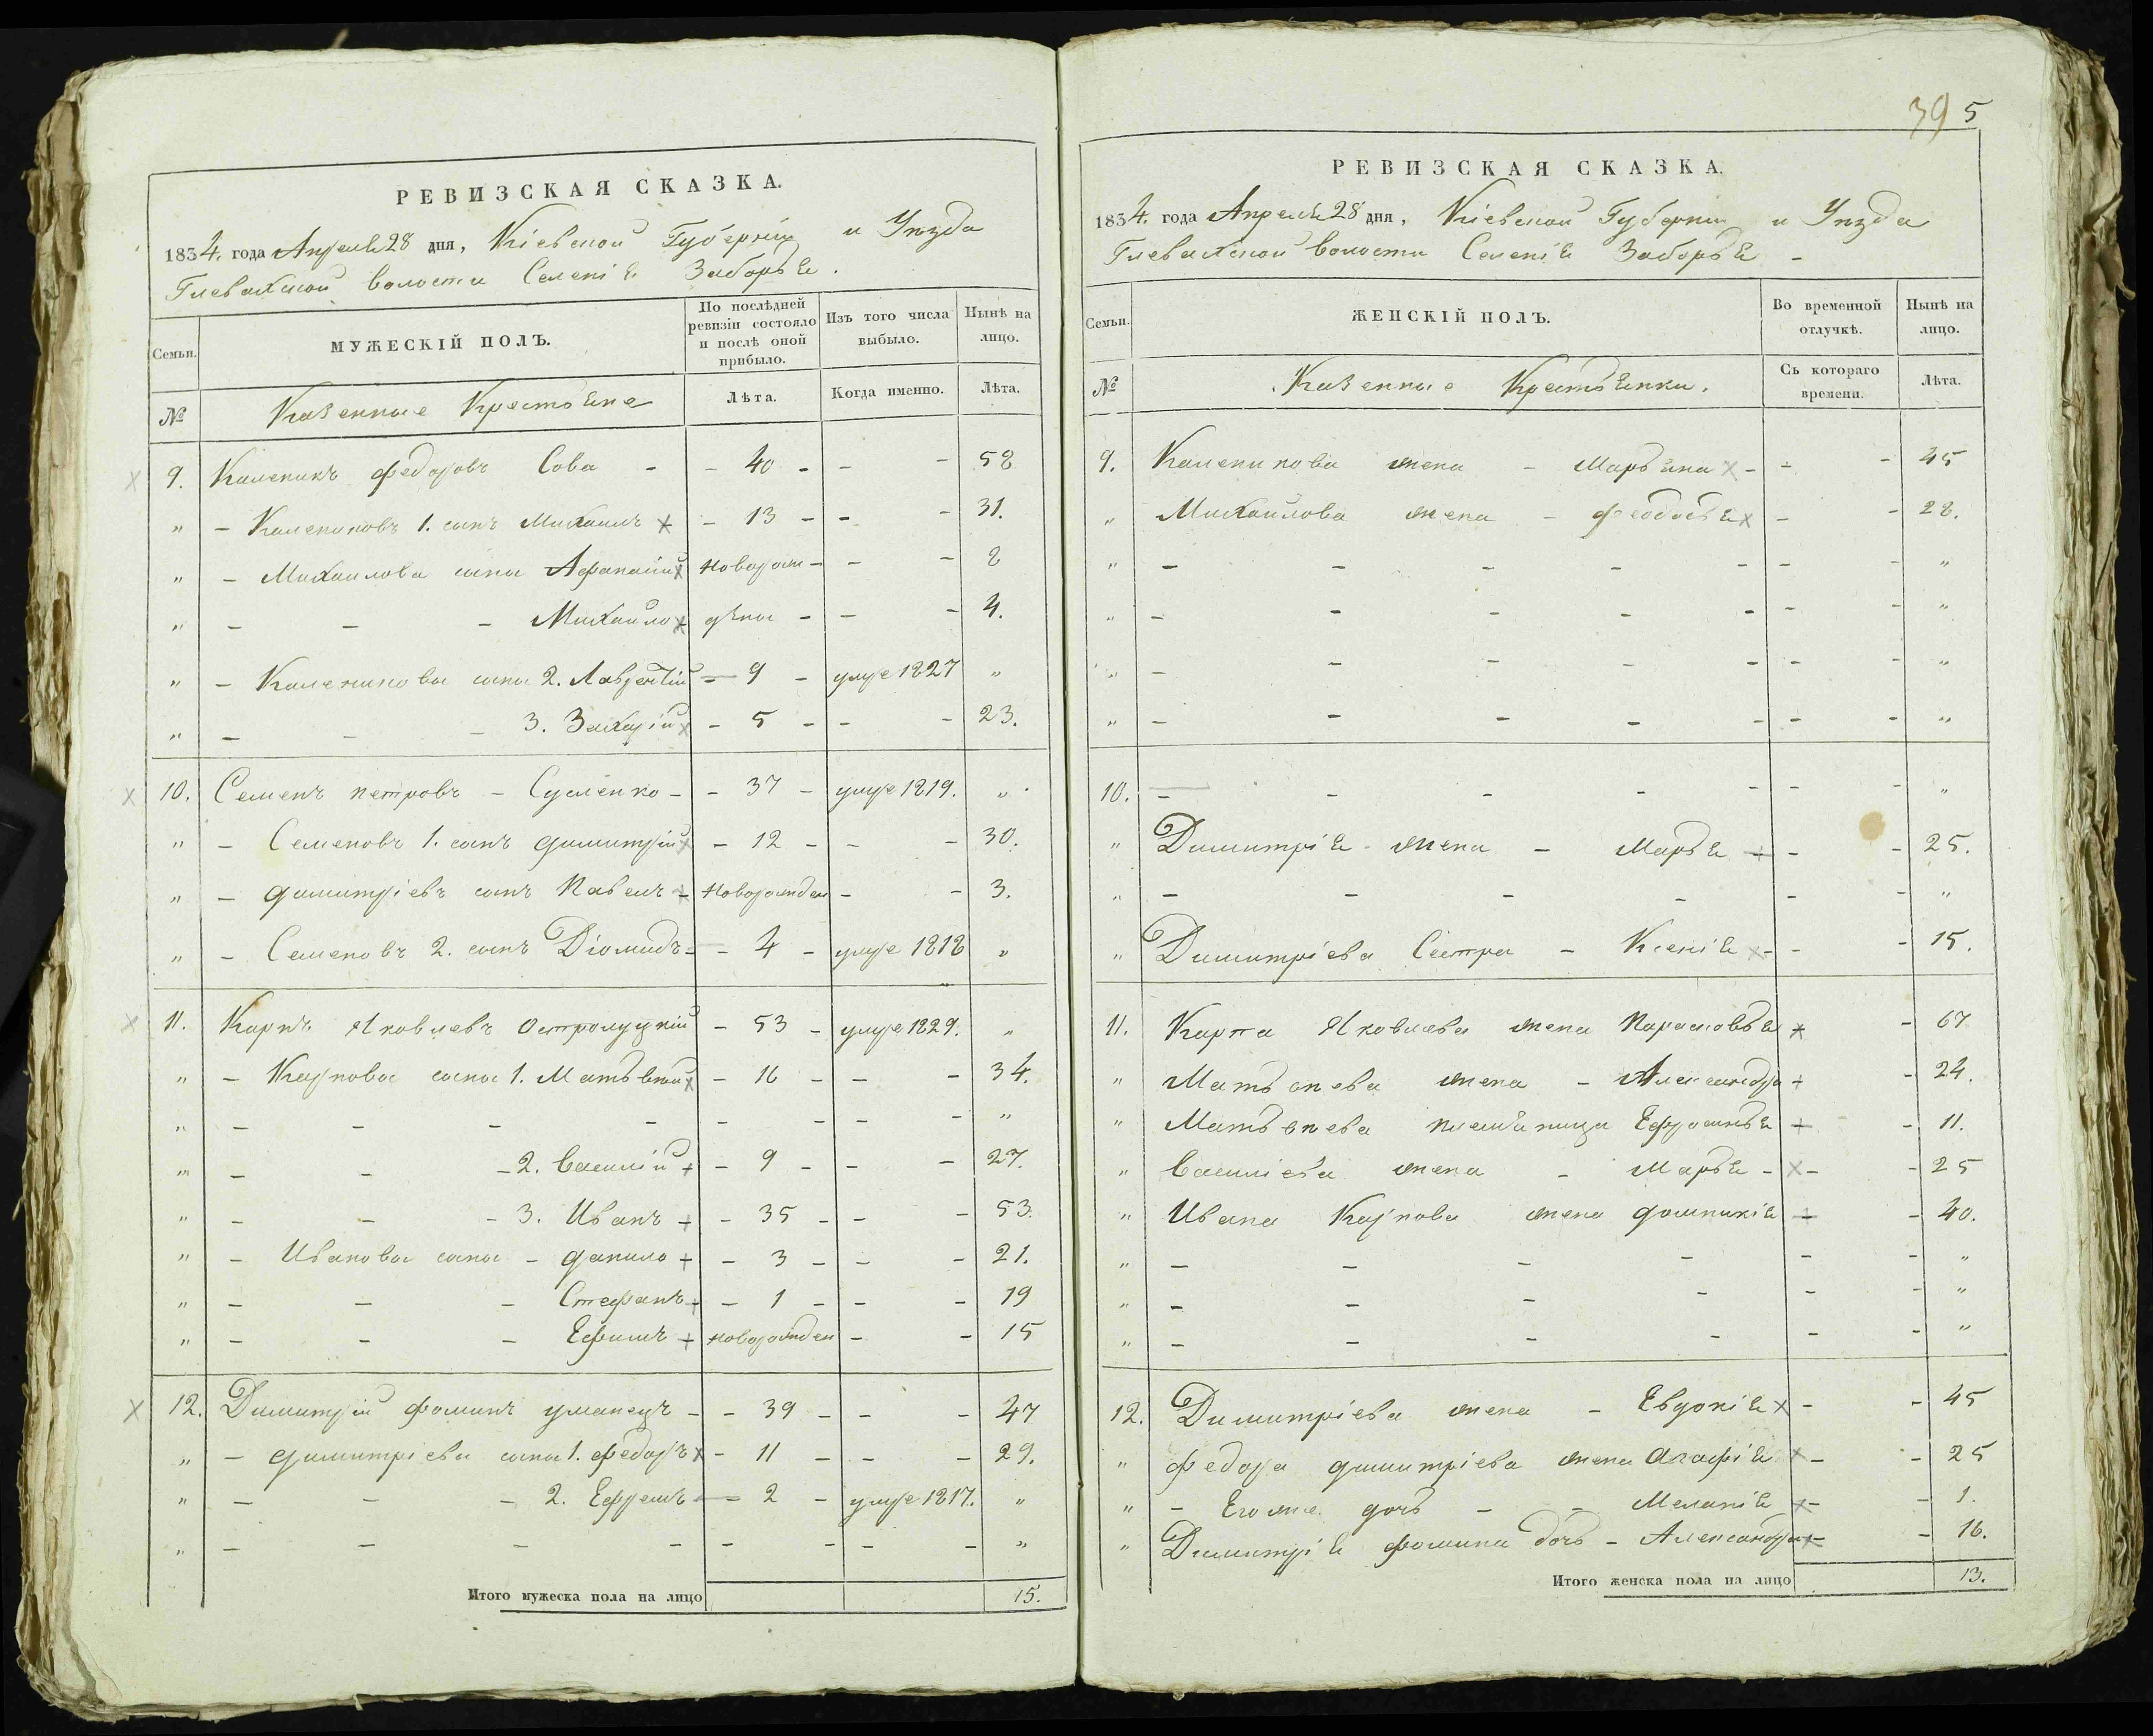 РЕВИЗСКАЯ СКАЗКА.
1834. года Апреля 28 дня, Кіевской Губерніи и Уезда
Глевахской волости Селенія Заборья.
Семьи. МУЖЕСКІЙ ПОЛЪ. По послѣдней ревизіи состояло и послѣ оной прибыло. Изъ того числа выбыло. Нынѣ на лицо.
№ Казенные Крестьяне Лѣта. Когда именно. Лѣта.
9. Каленикъ федоровъ Сова - - 40 - - - 52
" - Калениковъ 1. сынъ Михаилъ - 13 - - - 31.
" - Михаилова сыны Афанасій новорож - - - 8
" - - - Михайло дены - - - 4.
" - Каленикова сыны 2. Лаврентій - 9 - умре 1827 "
" - - - 3. Захарій - 5 - - - 23.
10. Семенъ петровъ - Сусленко - - 37 - умре 1819. "
" - Семеновъ 1. сынъ димитрій - 12 - - - 30.
" - димитріевъ сынъ Павелъ - новорожден - - 3.
" - Семеновъ 2. сынъ Діомидъ - - 4 - умре 1818 "
11. Карпъ Яковлевъ Остролуцкій - 53 - умре 1829. "
" - Карпова сыны 1. Матвей - 16 - - - 34.
" - - - - - - - - "
" - - - 2. Василій - 9 - - - 27.
" - - - 3. Иванъ - 35 - - - 53.
" - Иванова сыны - данило - 3 - - - 21.
" - - - Стефанъ - - 1 - - - 19
" - - - Ефимъ новорожден - - 15
12. Димитрій фоминъ уманецъ - - 39 - - - 47
" - димитріева сыны 1. федоръ - 11 - - - 29.
" - - - 2. Ефремъ - 2 - умре 1817. "
" - - - - - - - - "
Итого мужеска пола на лицо 15.
39 5
РЕВИЗСКАЯ СКАЗКА.
1834. года Апреля 28 дня, Кіевской Губерніи и Уезда
Глевахской волости Селенія Заборья -
Семьи. ЖЕНСКІЙ ПОЛЪ. Во временной отлучкѣ. Нынѣ на лицо.
№ Казенные Крестьянки. Съ котораго времени. Лѣта.
9. Каленикова жена - Марьяна - - - 45
" Михайлова жена - феодосья - - 28.
" - - - - - - - "
" - - - - - - - "
" - - - - - - - "
" - - - - - - - "
10. - - - - - - - "
" Димитрія - жена - Марья - - 25.
" - - - - - - "
" Димитріева Сестра - Ксенія - - - 15.
11. Карпа Яковлева жена Парасковья - 67
" Матвеева жена - Александра - 24.
" Матвеева племяница Ефросинья - 11.
" Василіева жена - Марья - - - 25
" Ивана Карпова жена домникія - 40.
" - - - - - - "
" - - - - - - "
" - - - - - - "
12. Димитріева жена - Евдокія - - 45
" федора димитріева жена Агафія - - 25
" - Его же дочь - - Меланія - - 1.
" Димитрія фомина дочь - Александра - - 16.
Итого женска пола на лицо 13.